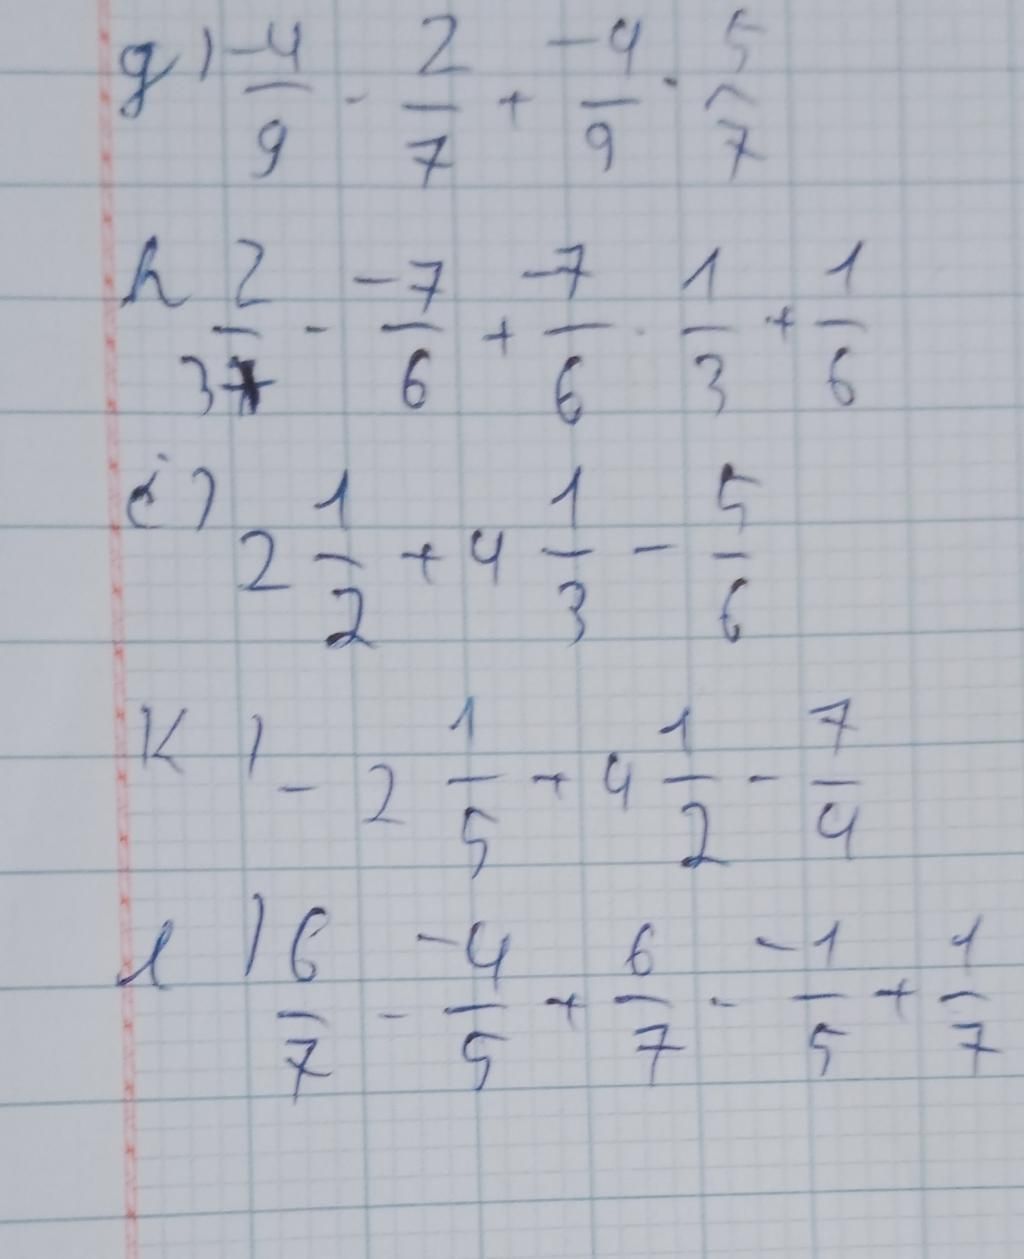 g) -4/9 - 2/7 + -4/9 · 5/7
h 2/3 - -7/6 + -7/6 · 1/3 + 1/6
i) 2 1/2 + 4 1/3 - 5/6
K) - 2 1/5 + 4 1/2 - 7/4
l) 6/7 - -4/5 + 6/7 - -1/5 + 1/7